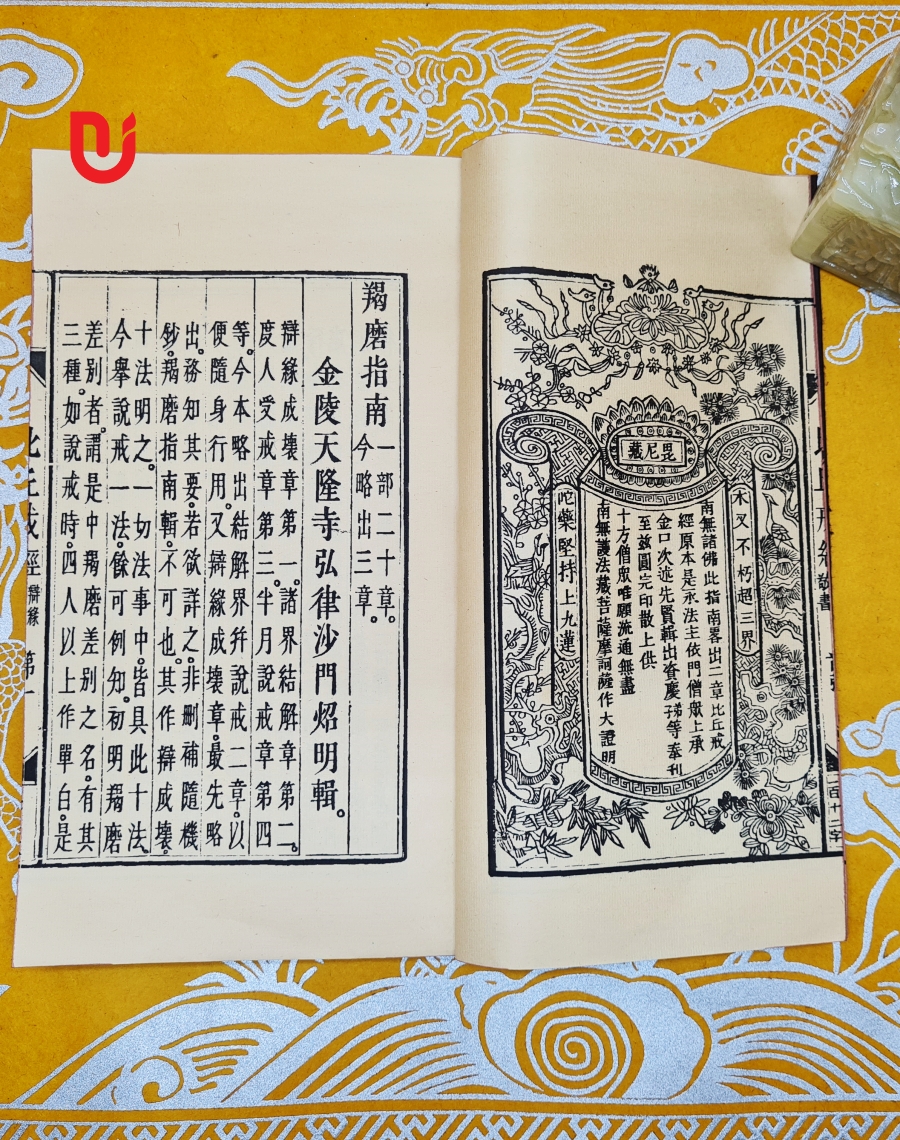 毘尼藏
木叉不朽超三界
南無諸佛此指南畧出二章比丘戒
經原本是永法主依門僧眾上承
金口次遞先賢輯出資慶子等奉刊
至兹圓完印散上供
十方僧眾唯願流通無盡
南無護法藏菩薩摩訶薩作大證明
陀藥堅持上九蓮
羯磨指南一部二十章。今略出三章。
金陵天隆寺弘律沙門炤明輯。
辯緣成壞章第一。諸界結解章第二。
度人受戒章第三。半月說戒章第四
等。今本略出結解界并說戒二章。以
便隨身行用。又辯緣成壞章。最先略
出。務知其要。若欲詳之。非刪補隨機
鈔。羯磨指南輯。不可也。其作辯成壞。
十法明之。一切法事中。皆具此十法。
今舉說戒一法。餘可例知。初明羯磨
差别者。謂是中羯磨差别之名。有其
三種。如說戒時。四人以上作單白。是
比丘戒經 辯緣 第一